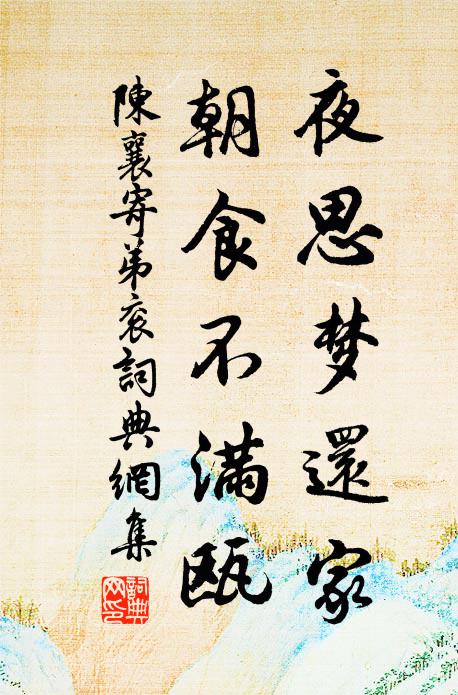 夜思梦還家
朝食不滿甌
陳襄寄弟衮詞典網集
詞典